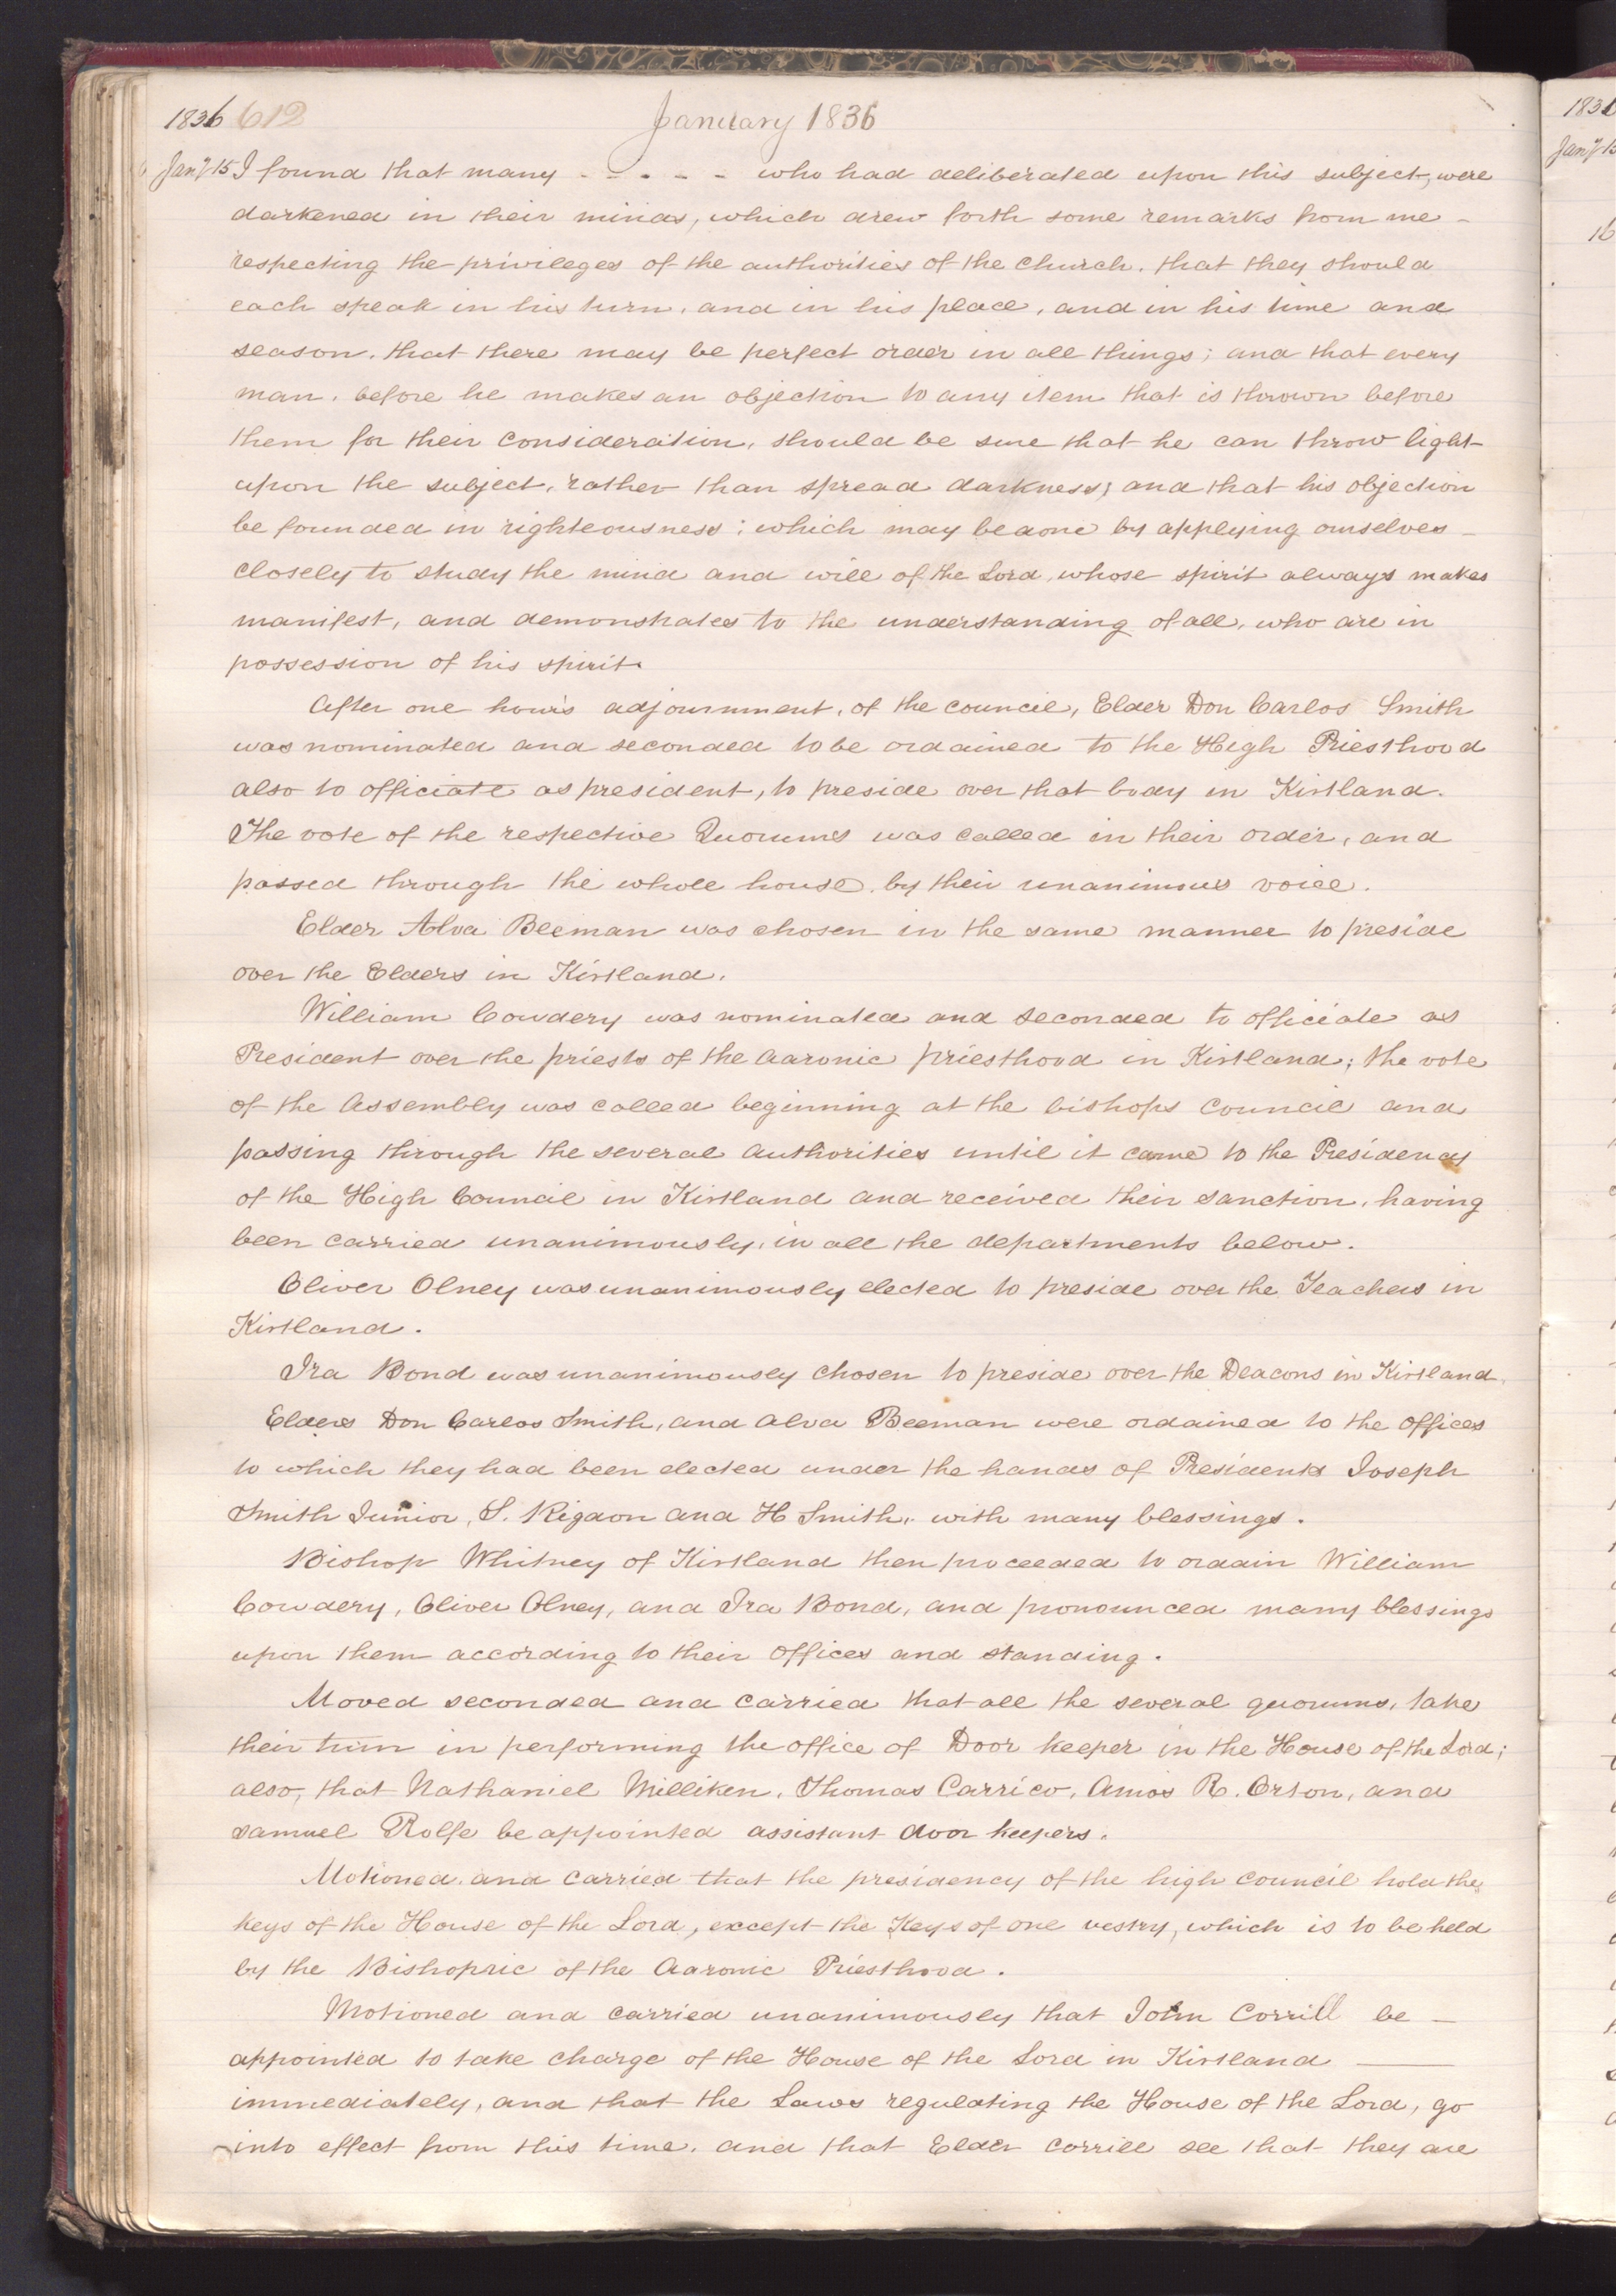 1836 612 January 1836
Jany 15 I found that many - - - - - who had deliberated upon this subject, were
darkened in their minds, which drew forth some remarks from me -
respecting the privileges of the authorities of the Church. that they should
each speak in his turn, and in his place, and in his time and
season. that there may be perfect order in all things; and that every
man. before he makes an objection to any item that is thrown before
them for their consideration, should be sure that he can throw light
upon the subject, rather than spread darkness; and that his objection
be founded in righteousness; which may be done by applying ourselves -
closely to study the mind and will of the Lord, whose spirit always makes
manifest, and demonstrates to the understanding of all, who are in
possession of his spirit.
After one hour's adjournment, of the council, Elder Don Carlos Smith
was nominated and seconded to be ordained to the High Priesthood
also to officiate as president, to preside over that body in Kirtland.
The vote of the respective Quorums was called in their order, and
passed through the whole house, by their unanimous voice.
Elder Alva Beeman was chosen in the same manner to preside
over the Elders in Kirtland.
William Cowdery was nominated and seconded to officiate as
President over the priests of the Aaronic priesthood in Kirtland; the vote
of the Assembly was called beginning at the bishops council and
passing through the several authorities until it came to the Presidency
of the High Council in Kirtland and received their sanction, having
been carried unanimously, in all the departments below.
Oliver Olney was unanimously elected to preside over the Teachers in
Kirtland.
Ira Bond was unanimously chosen to preside over the Deacons in Kirtland.
Elders Don Carlos Smith, and Alva Beeman were ordained to the offices
to which they had been elected under the hands of Presidents Joseph
Smith Junior, S. Rigdon and H Smith, with many blessings.
Bishop Whitney of Kirtland then proceeded to ordain William
Cowdery, Oliver Olney, and Ira Bond, and pronounced many blessings
upon them according to their offices and standing.
Moved seconded and carried that all the several quorums, take
their turn in performing the office of Door keeper in the House of the Lord;
also, that Nathaniel Milliken, Thomas Carrico, Amos R. Orton, and
Samuel Rolfe be appointed assistant door keepers.
Motioned. and carried that the presidency of the high council hold the
keys of the House of the Lord, except the Keys of one vestry, which is to be held
by the Bishopric of the Aaronic Priesthood.
Motioned and carried unanimously that John Corrill be -
appointed to take charge of the House of the Lord in Kirtland —
immediately, and that the Laws regulating the House of the Lord, go
into effect from this time. and that Elder Corrill see that they are
183
Jany 15
16